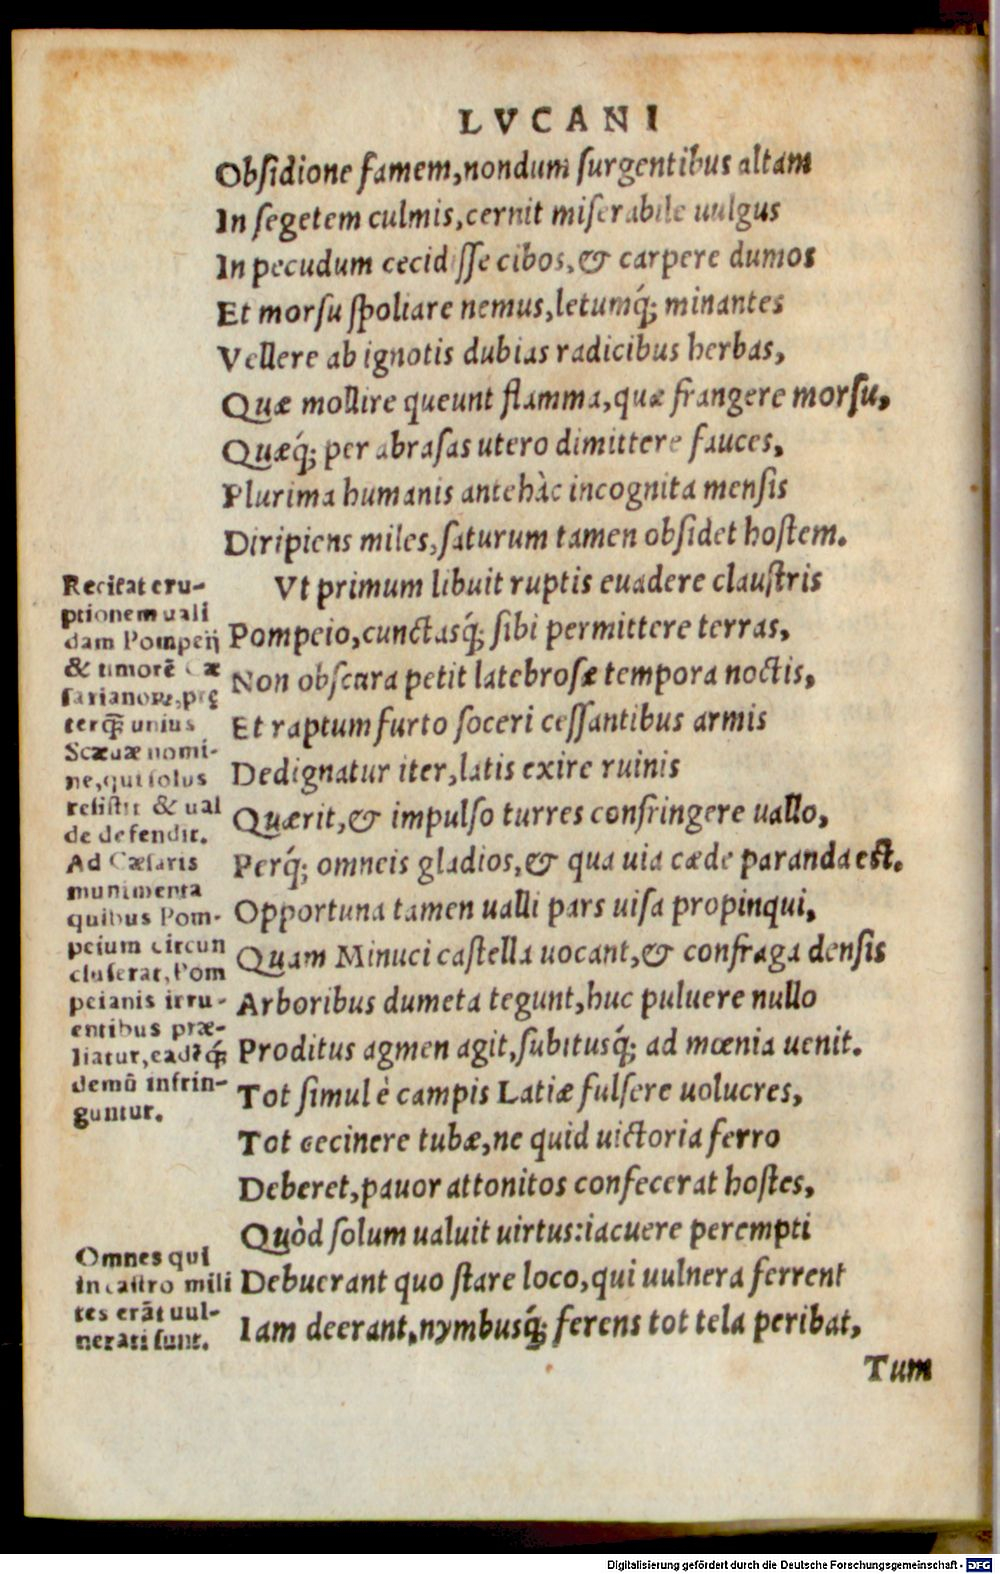 LVCANI
Obsidione famem, nondum surgentibus altam
In segetem culmis, cernit miserabile uulgus
In pecudum cecidisse cibos, & carpere dumos
Et morsu spoliare nemus, letumq́; minantes
Vellere ab ignotis dubias radicibus herbas,
Quæ mollire queunt flamma, quæ frangere morsu,
Quæq́; per abrasas utero dimittere fauces,
Plurima humanis antehàc incognita mensis
Diripiens miles, saturum tamen obsidet hostem.
Vt primum libuit ruptis euadere claustris
Pompeio, cunctasq́; sibi permittere terras,
Non obscura petit latebrosæ tempora noctis,
Et raptum furto soceri cessantibus armis
Dedignatur iter, latis exire ruinis
Quærit, & impulso turres confringere uallo,
Perq́; omneis gladios, & qua uia cæde paranda est.
Opportuna tamen ualli pars uisa propinqui,
Quam Minuci castella uocant, & confraga densis
Arboribus dumeta tegunt, huc puluere nullo
Proditus agmen agit, subitusq́; ad mœnia uenit.
Tot simul è campis Latiæ fulsere uolucres,
Tot cecinere tubæ, ne quid uictoria ferro
Deberet, pauor attonitos confecerat hostes,
Quòd solum ualuit uirtus: iacuere perempti
Debuerant quo stare loco, qui uulnera ferrent
Iam deerant, nymbusq́; ferens tot tela peribat,
Tum
Recitat eru-
ptionem uali
dam Pompeij
& timorē Cæ
sarianoꝝ, prę
terq̃; unius
Scæuæ nomi-
ne, qui solus
resistit & ual
de defendit.
Ad Cæsaris
munimenta
quibus Pom-
peium circun
cluserat, Pom
peianis irru-
entibus præ-
liatur, eadēq́;
demū infrin-
guntur.
Omnes qui
in castro mili
tes erāt uul-
nerati sunt.
Digitalisierung gefördert durch die Deutsche Forschungsgemeinschaft - DFG